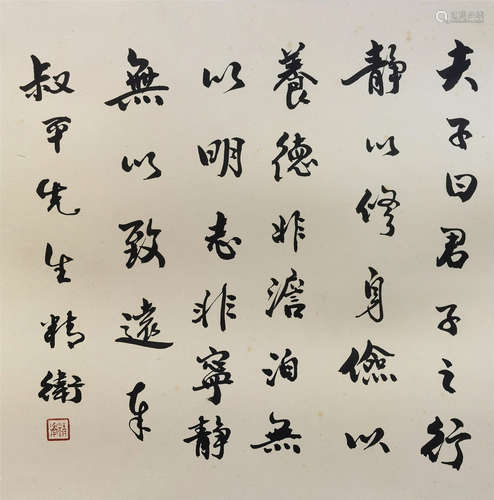 夫子曰君子之行
靜以修身儉以
養德非澹泊無
以明志非寧靜
無以致遠奉
叔平先生精衛